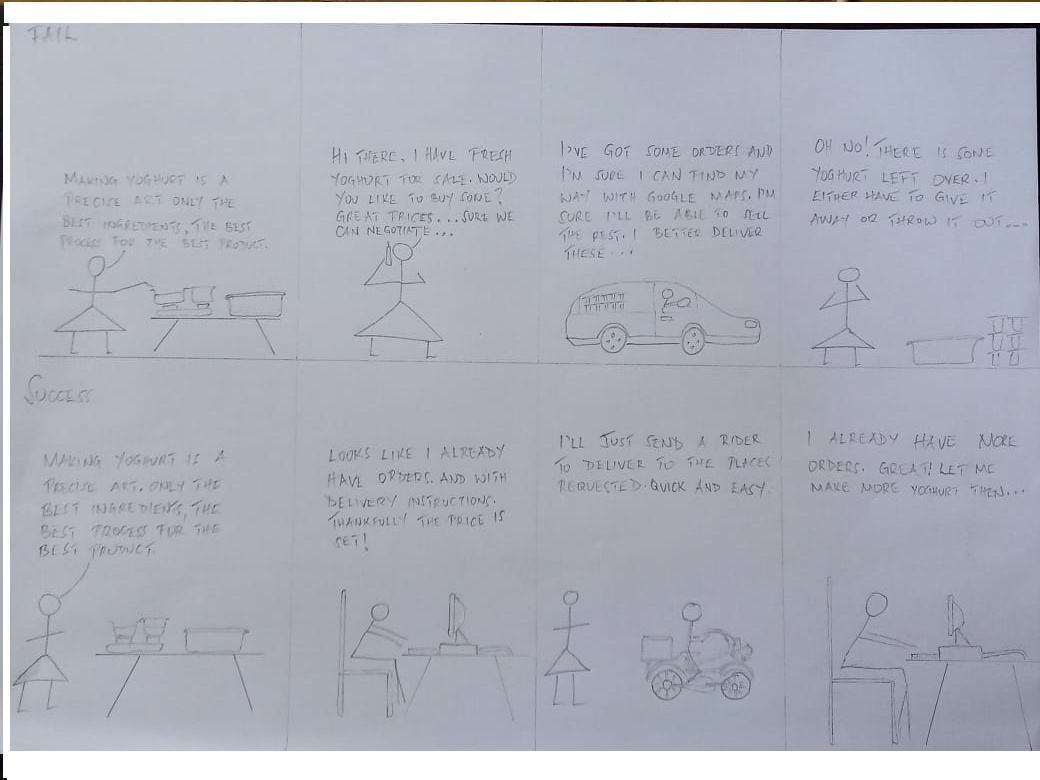 FAIL
MAKING YOGHURT IS A
PRECISE ART ONLY THE
BEST INGREDIENTS, THE BEST
PROCESS FOR THE BEST PRODUCT.
HI THERE, I HAVE FRESH
YOGHURT FOR SALE. WOULD
YOU LIKE TO BUY SOME?
GREAT PRICES... SURE WE
CAN NEGOTIATE...
I'VE GOT SOME ORDERS AND
I'M SURE I CAN FIND MY
WAY WITH GOOGLE MAPS. I'M
SURE I'LL BE ABLE TO SELL
THE REST. I BETTER DELIVER
THESE...
OH NO! THERE IS SOME
YOGHURT LEFT OVER. I
EITHER HAVE TO GIVE IT
AWAY OR THROW IT OUT....
SUCCESS
MAKING YOGHURT IS A
PRECISE ART. ONLY THE
BEST INGREDIENTS, THE
BEST PROCESS FOR THE
BEST PRODUCT.
LOOKS LIKE I ALREADY
HAVE ORDERS. AND WITH
DELIVERY INSTRUCTIONS.
THANKFULLY THE PRICE IS
SET!
I'LL JUST SEND A RIDER
TO DELIVER TO THE PLACES
REQUESTED. QUICK AND EASY.
I ALREADY HAVE MORE
ORDERS. GREAT! LET ME
MAKE MORE YOGHURT THEN...